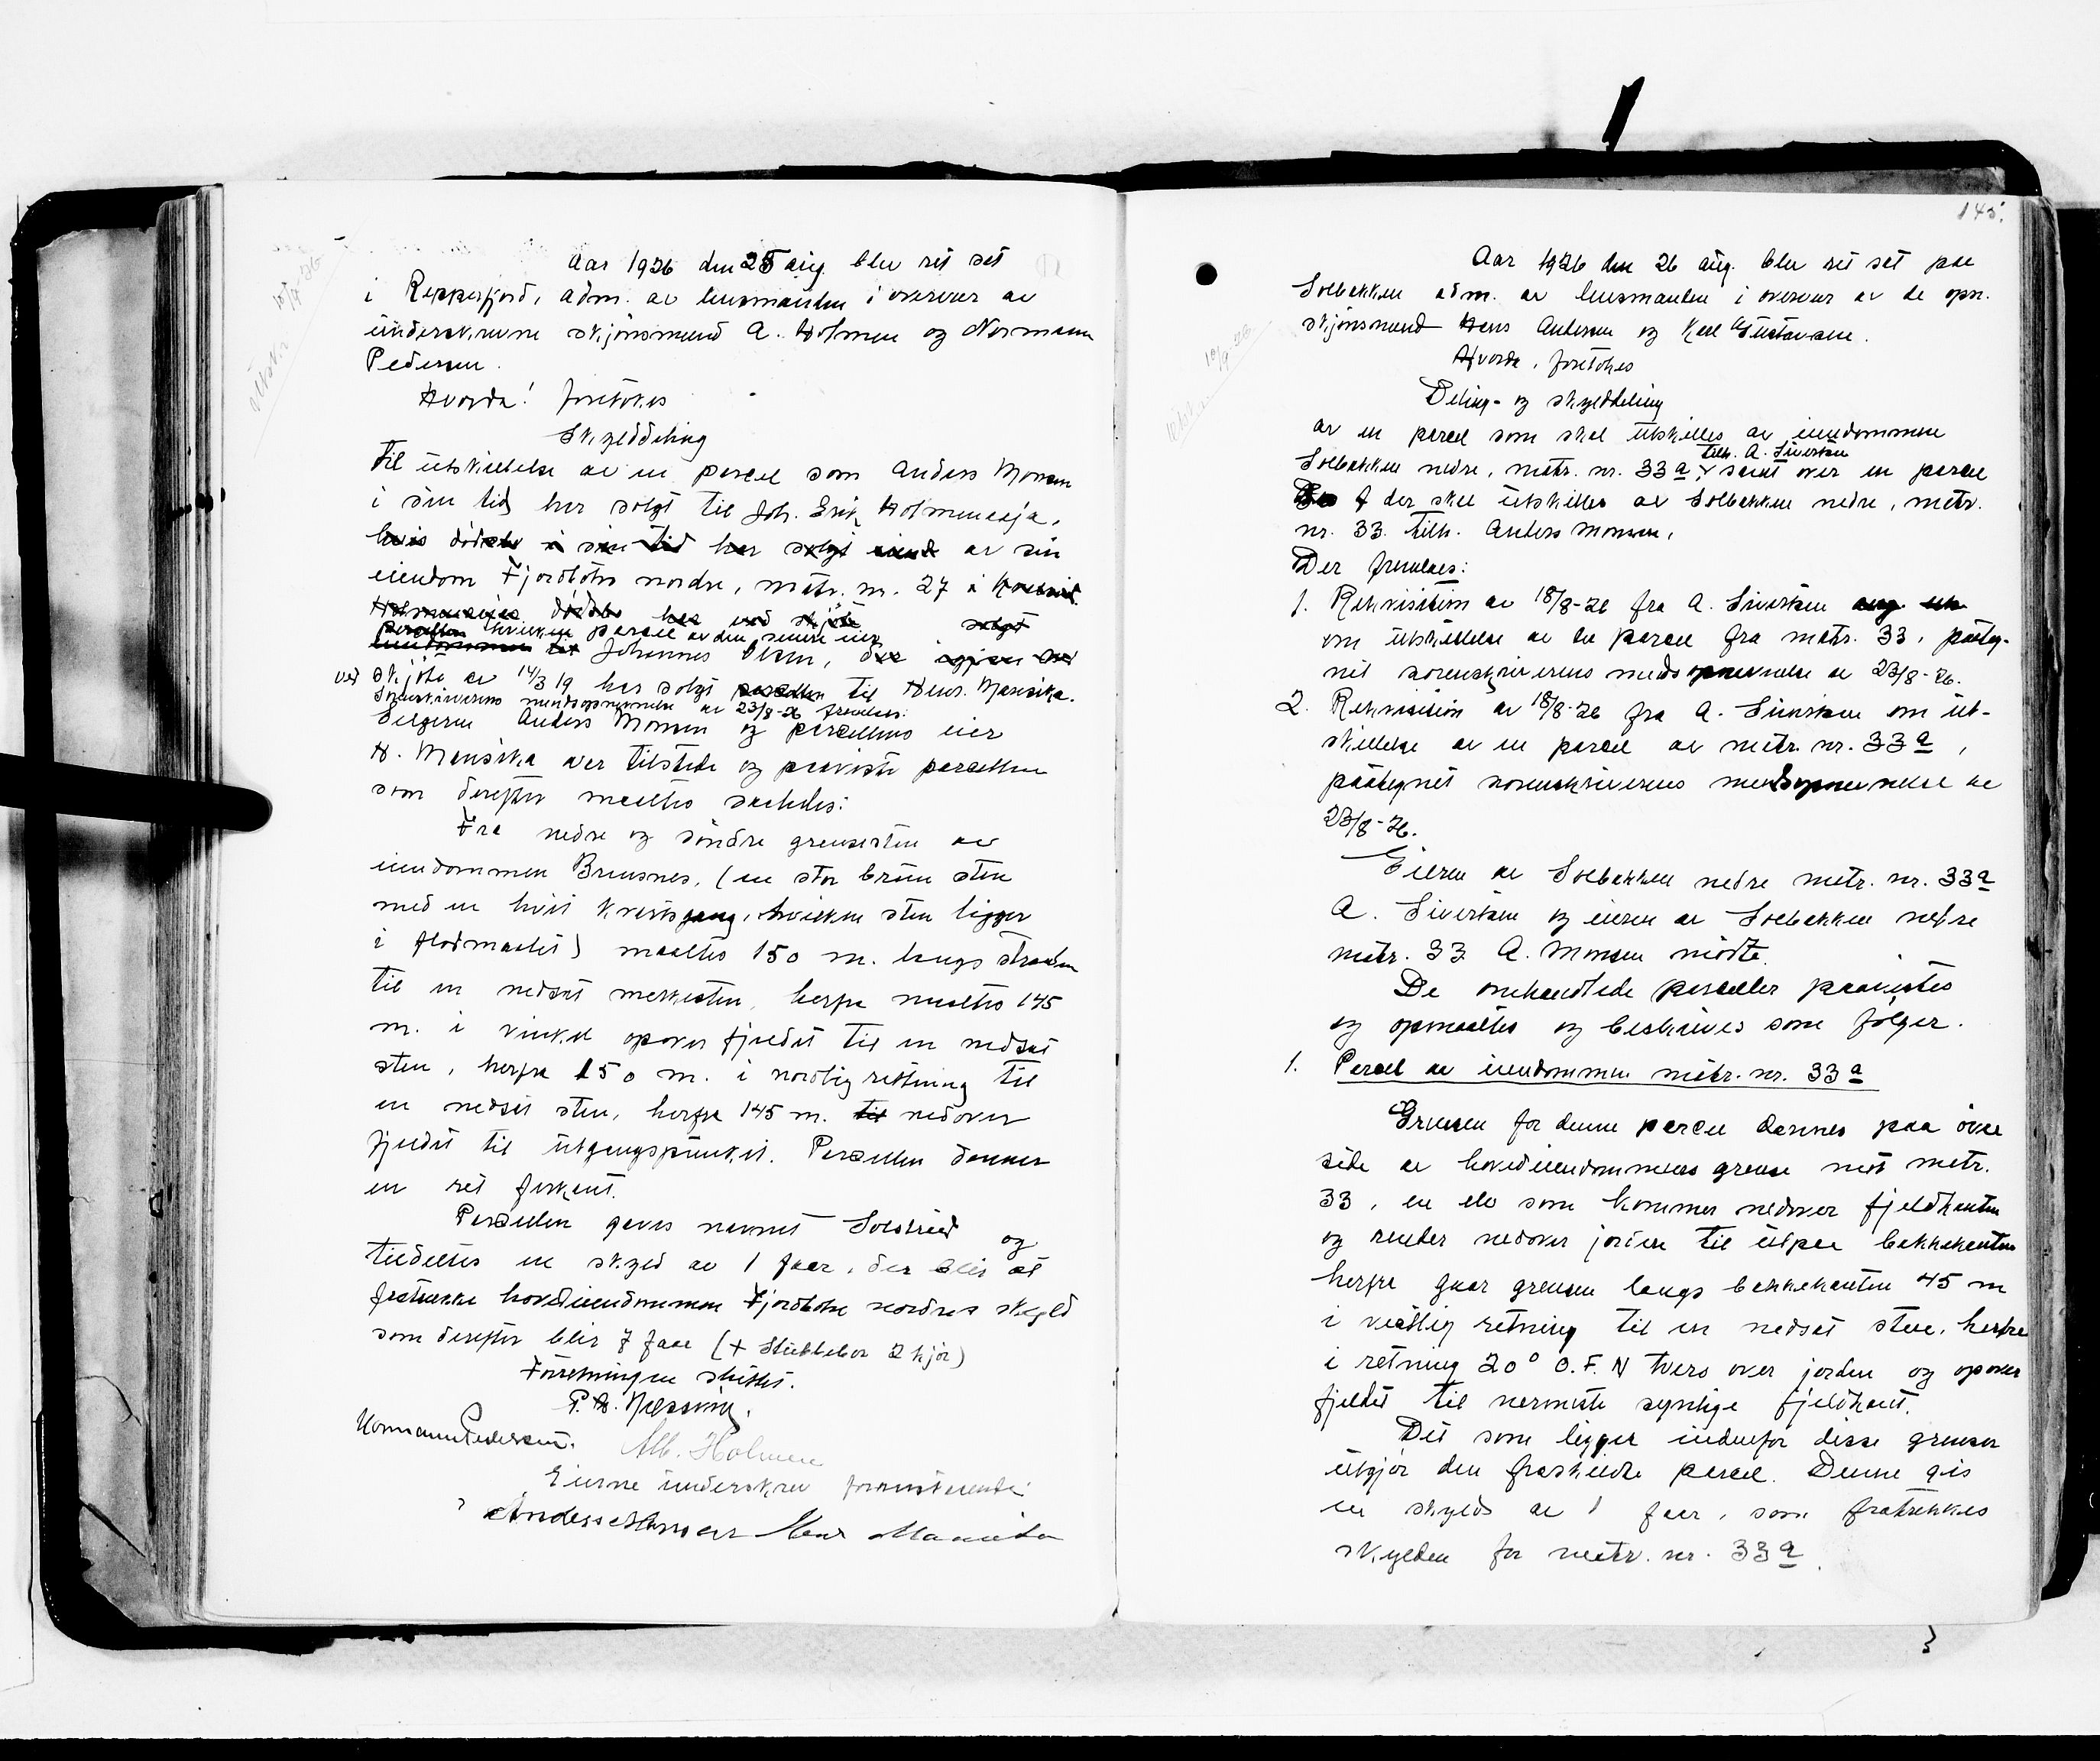 Aar 1926 den 25 aug. blev ret sat
i Repperfjord, adm. av lensmanden i overvær av
underskrevne skjønsmænd A. Holmen og Normann
Pedersen.
Hvorda! foretokes
Skylddeling
til utskillelse av en parcel som Anders Monsen
i sin tid har solgt til Joh. Erik Holmenesja,
hvis dødsbo i sin tid har solgt av sin
eiendom Fjordbotn nordre, matr. nr. 27 i
dødsbo har ved skjøte solgt
parcellen hvilken parcel av den senere eier
eiendommen til Johannes Olsen, der igjen ved
ved skjøte av 14/3 19 har solgt parcellen til Henr. Mansika.
Sorenskriverens mendsopnevnelse av 23/8-26 fremlaes.
Selgeren Anders Monsen og parcellens eier
H. Mansika var tilstede og paaviste parcellen
som derefter maaltes saaledes:
Fra nedre og søndre grensesten av
eiendommen Brensnes, (en stor brun sten
med en hvit kvartsgang, hvilken sten ligger
i flodmaalet) maaltes 150 m. langs stranden
til en nedsat merkesten, herfra maaltes 145
m. i vinkel opover fjeldet til en nedsat
sten, herfra 150 m. i nordlig retning til
en nedsat sten, herfra 145 m. til nedover
fjeldet til utgangspunktet. Parcellen danner
en ret firkant.
Parcellen gaves navnet Solstrand og
tildeltes en skyld av 1 øre, der blir at
fratrække hovedeiendommen Fjordbotn nordres skyld
som derefter blir 7 øre (+ Stubbebor 2 hjør)
Forretningen sluttet.
P. H.
Normann Pedersen. Alb. Holmen
Eierne underskrev foranstaaende:
Anders Monsen Henr Mansika
145.
Aar 1926 den 26 aug. blev ret sat paa
Solbakken adm. av lensmanden i overvær av de opn.
skjønsmænd Hans Andersen og Karl Gustavsen.
Hvorda, foretokes
Deling- og skylddeling
av en parcel som skal utskilles av eiendommen
tilh. A. Sivertsen
Solbakken nedre, matr. nr. 33 a, samt over en parcel
der skal utskilles av Solbakken nedre, matr.
nr. 33 tilh. Anders Monsen,
Der fremlaes:
1. Rekvisition av 18/8-26 fra A. Sivertsen
om utskillelse av en parcel fra matr. 33, paateg-
net sorenskriverens mendsopnevnelse av 23/8-26.
2. Rekvisition av 18/8-26 fra A. Sivertsen om ut-
skillelse av en parcel av matr. nr. 33 a,
paategnet sorenskriverens mendsopnevnelse av
23/8-26.
Eieren av Solbakken nedre matr. nr. 33 a
A. Sivertsen og eieren av Solbakken nedre
matr. 33 A. Monsen møtte.
De omhandlede parceller paavistes
og opmaaltes og beskrives som følger.
1. Parcel av eiendommen matr. nr. 33 a
Grensen for denne parcel dannes paa øvre
side av hovedeiendommens grense mot matr.
33, en elv som kommer nedover fjeldkanten
og render nedover jorden til utpaa bakkekanten
herfra gaar grensen langs bakkekanten 45 m
i vestlig retning til en nedsat sten, herfra
i retning 20° O.F.N tvers over jorden og opover
fjeldet til nærmeste synlige fjeldkant.
Det som ligger indenfor disse grenser
utgjør den fraskilte parcel. Denne gis
en skyld av 1 øre, som fratrekkes
skylden for matr. nr. 33 a.